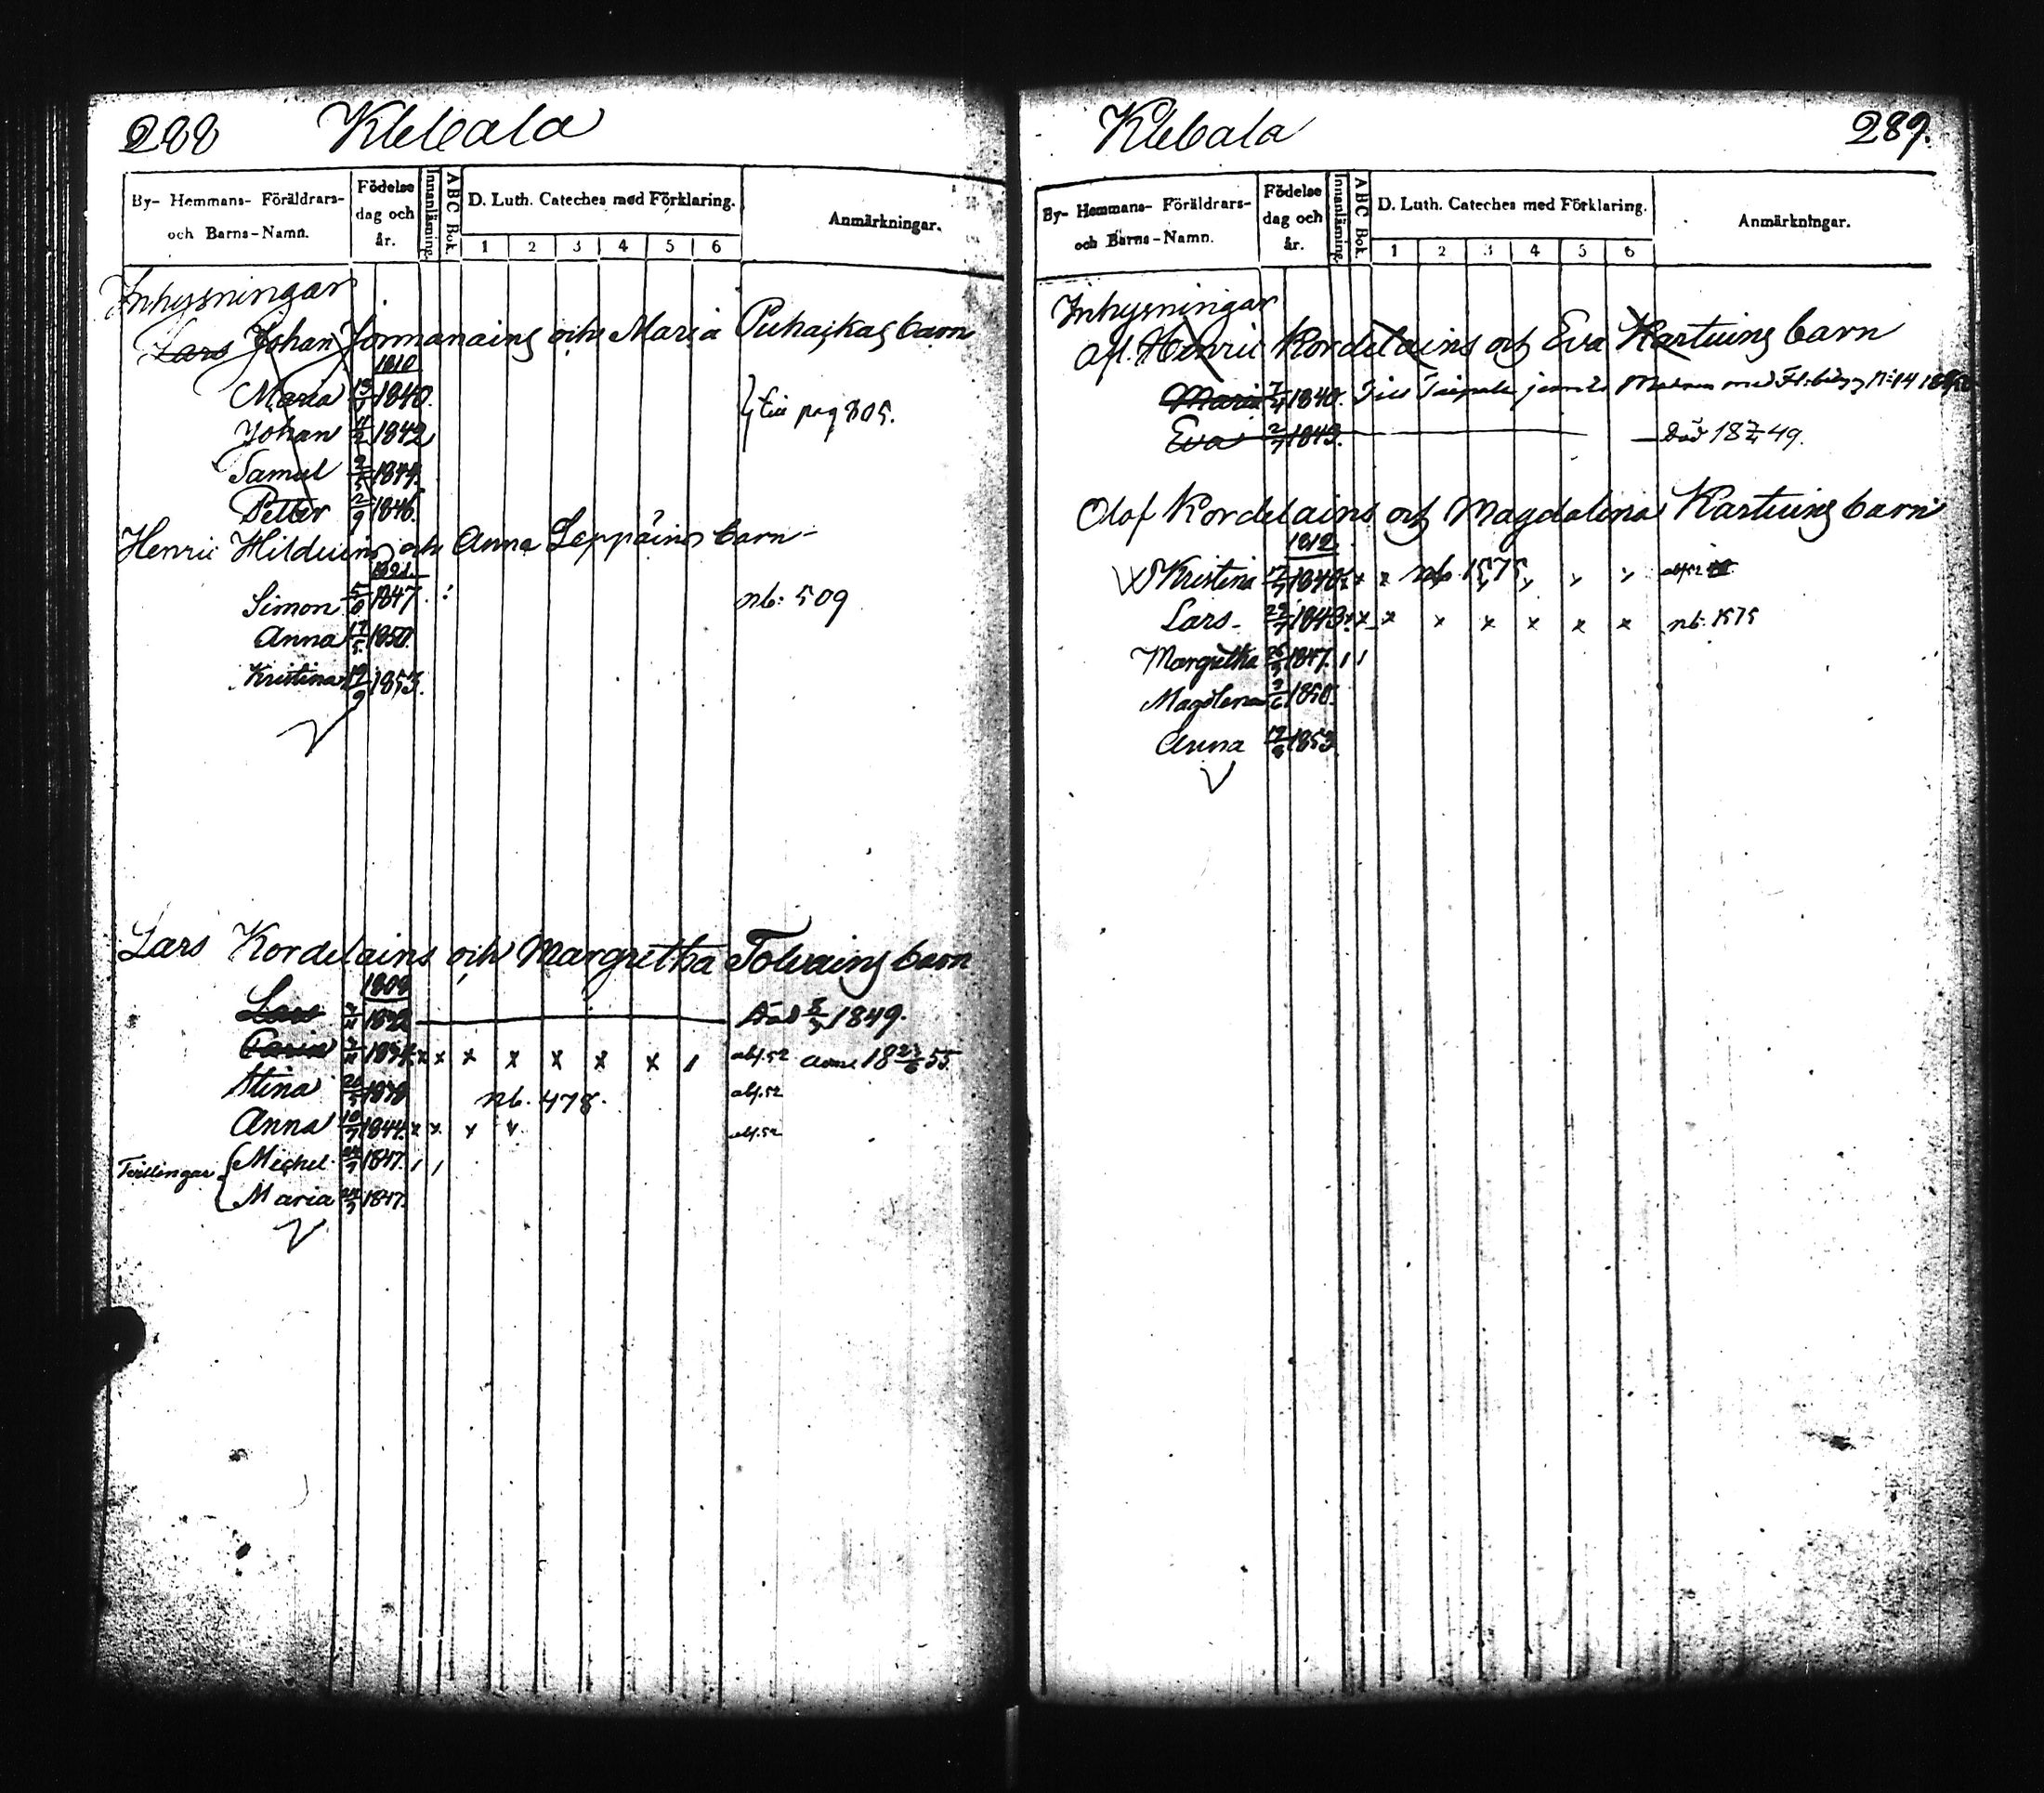 288 Klebala
By- Hemmans- Föräldrars- och Barns-Namn.
Födelse dag och år.
Innanläsning.
A B C Bok.
D. Luth. Cateches med Förklaring.
1 2 3 4 5 6
Anmärkningar.
Inhysningar
Lars Johan Jormanains och Maria Puhakas barn
1810
Maria 1840.
Johan 1842 till pag 805.
Samuel 1844.
Petter 2/9 1846.
Henric Hilduins och Anna Leppäins barn
Simon 5/6 1847. nb: 509
Anna 17/5 1850.
Kristina 19/9 1853.
Lars Kordelains och Margretha Tolvains barn
1808
Lars Död 1849.
x x x x x x x abs. 52
Stina nb. 478. abs. 52
Anna 10/7 1844. x x x abs. 52
Tvillingar Michel 1847.
Maria 1847.
Klebala 289.
By- Hemmans- Föräldrars- och Barns-Namn.
Födelse dag och år.
Innanläsning.
A B C Bok.
D. Luth. Cateches med Förklaring.
1 2 3 4 5 6
Anmärkningar.
Inhysningar
afl. Henric Kordelains och Eva Kartuins barn
Maria 1840. Till Taipale
Eva 1843. Död 18 49.
Olof Kordelains och Magdalena Kartuins barn
1812
Kristina 1840. x x nb. 1575
Lars 1843 x x x x x x x nb. 1575
Margretha 1847.
Magdlena 1850.
Anna 1853